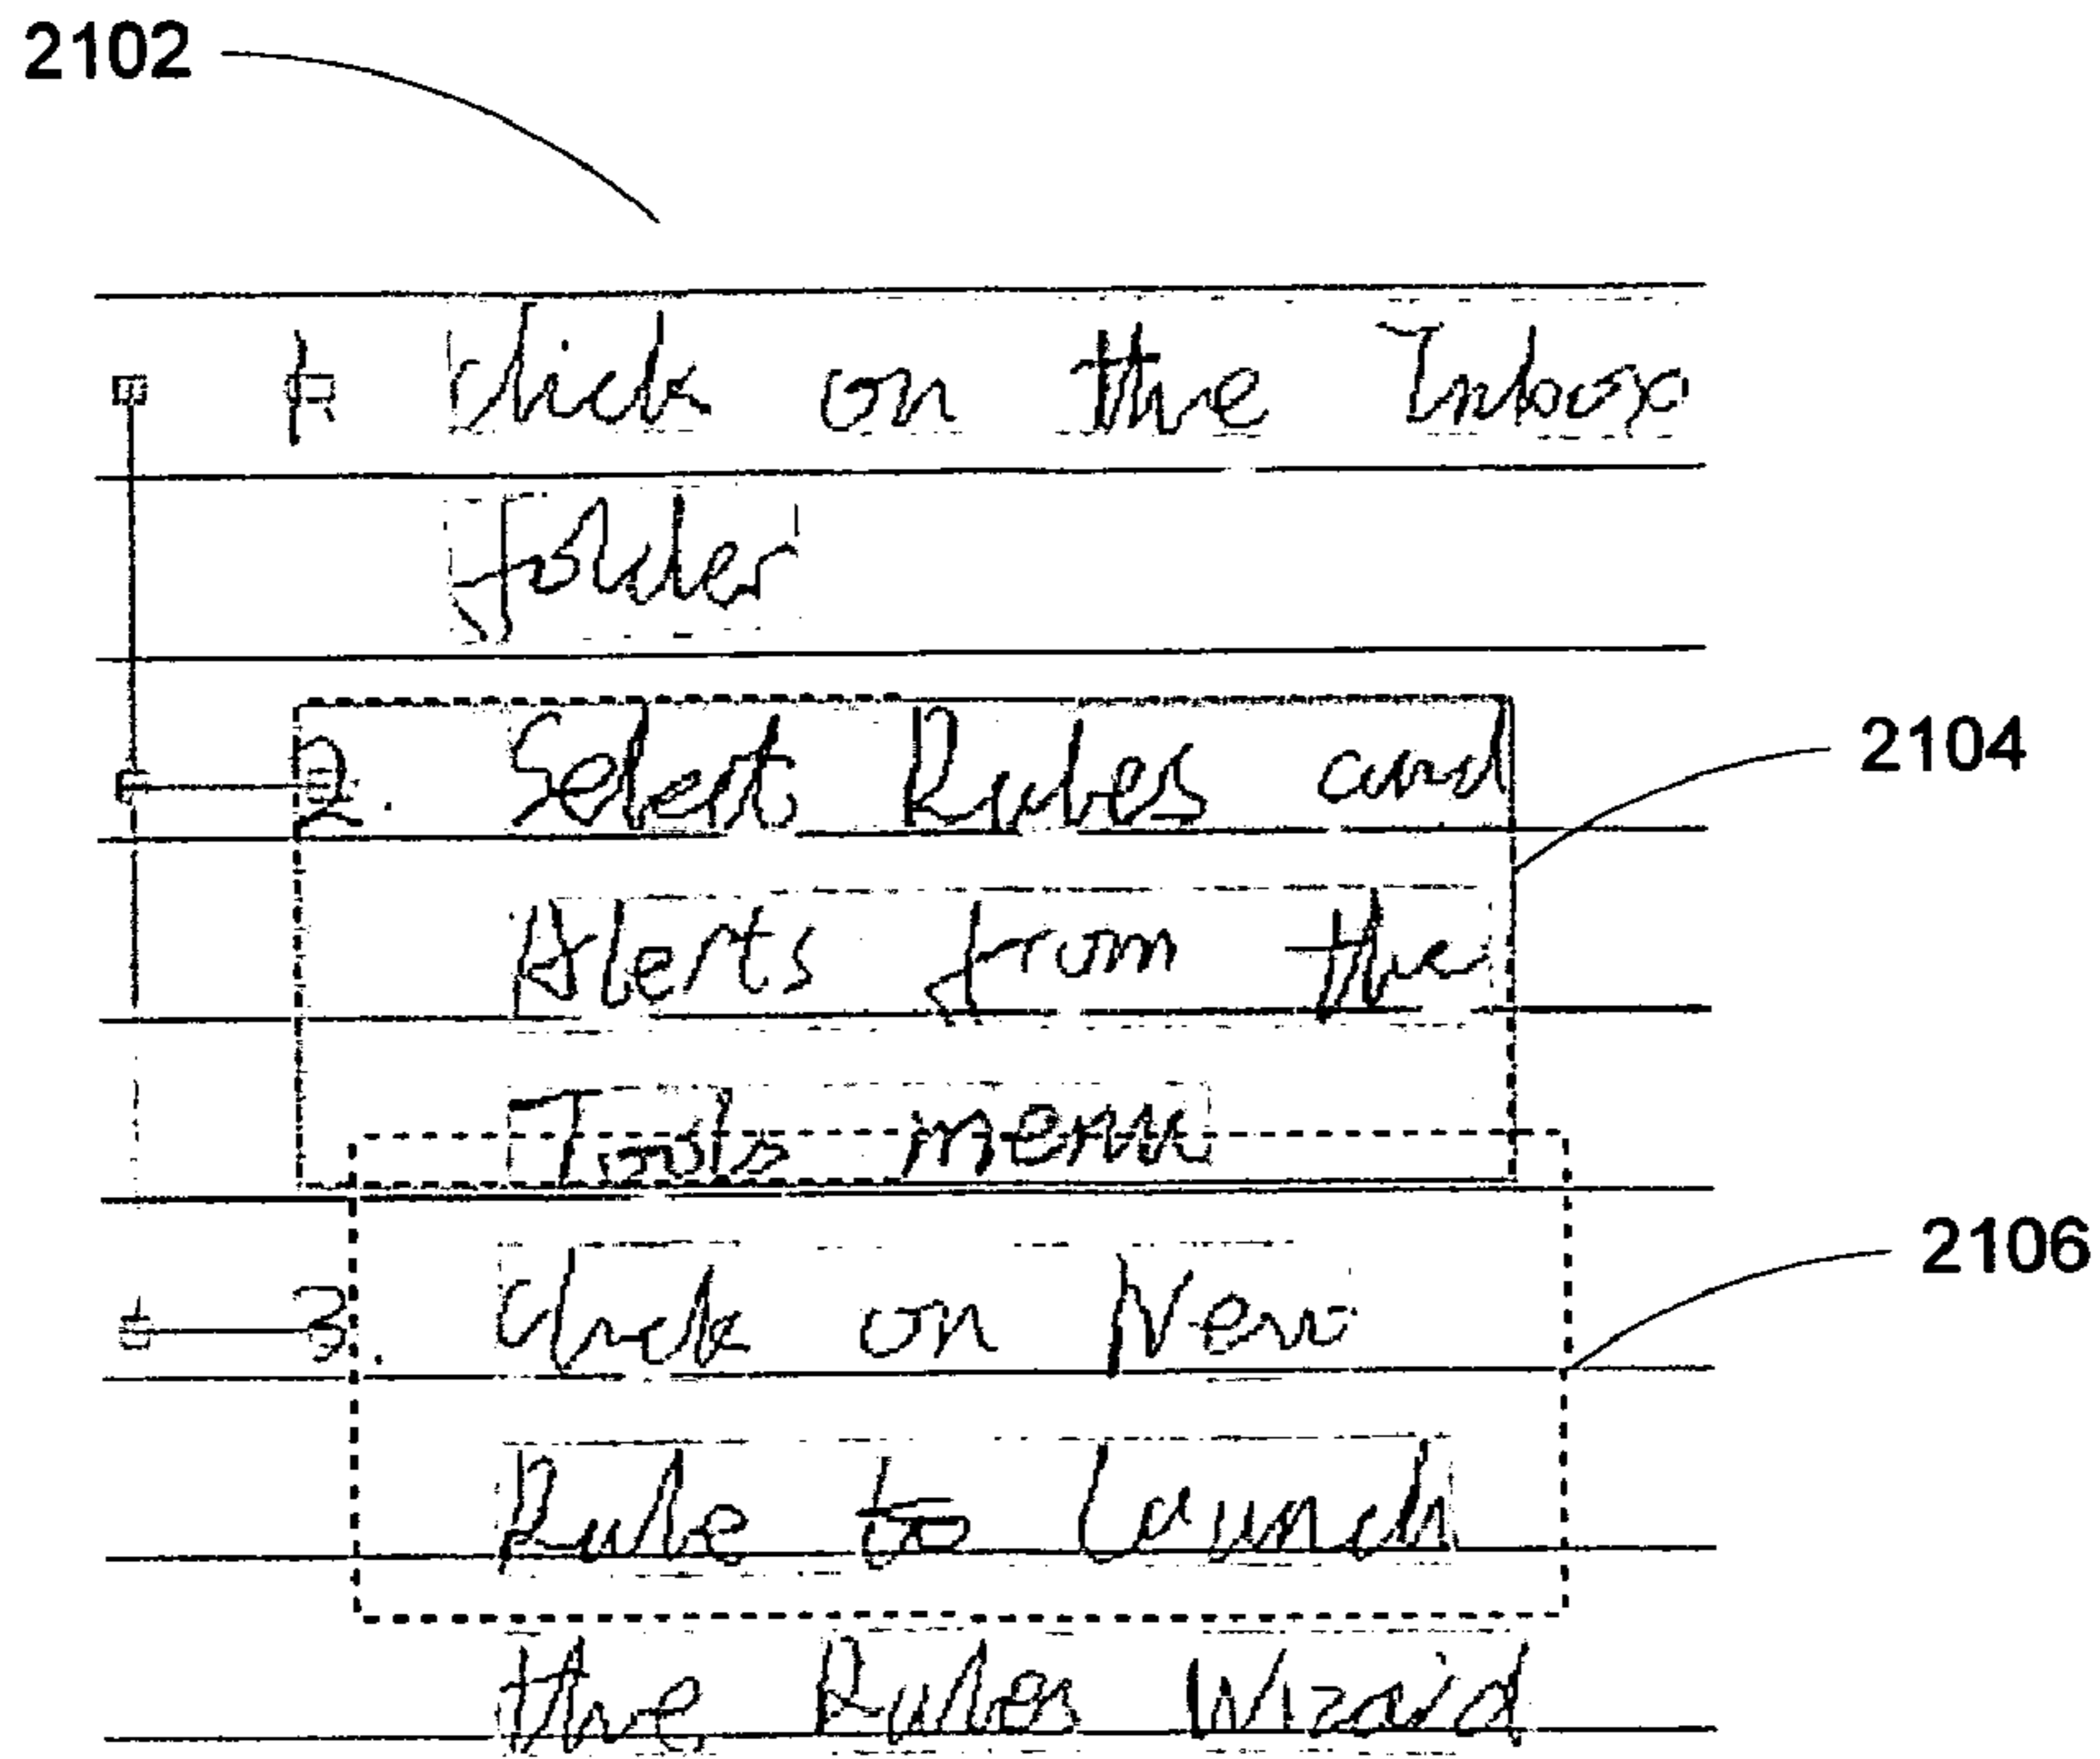 2102
1. Click on the Inbox
folder
2. Select Rules and
2104
Alerts from the
Tools menu
2106
3. Click on New
Rule to Launch
the Rules Wizard